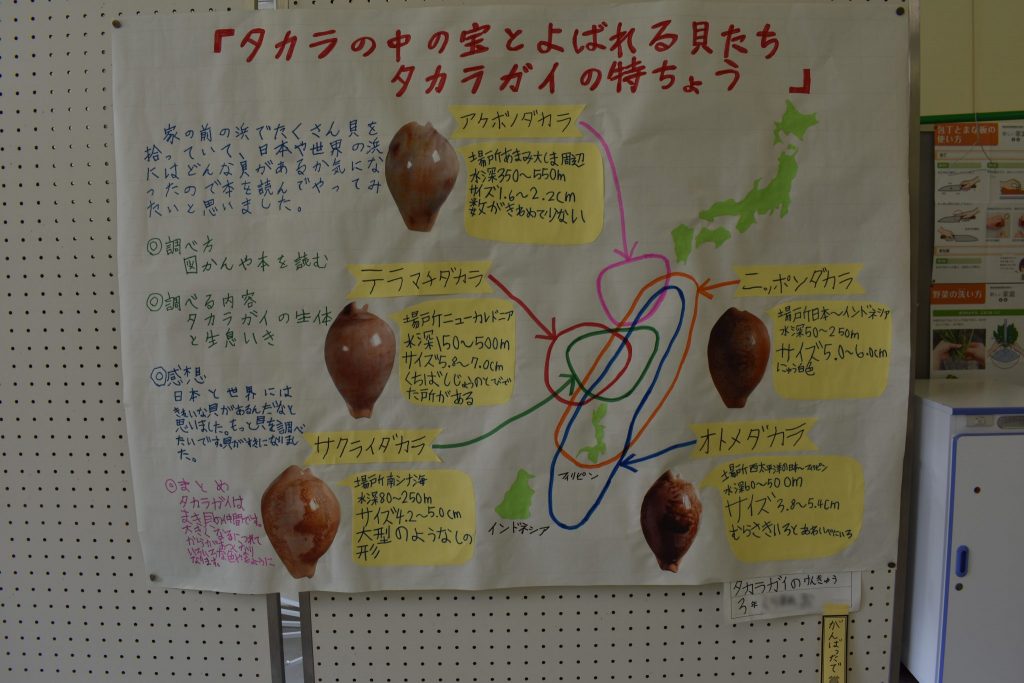 『タカラの中の宝とよばれる貝たち
タカラガイの特ちょう　』
家の前の浜でたくさん貝を
拾っていて、日本や世界の浜
にはどんな貝があるか気にな
ったので本を読んでやってみ
たいと思いました。
◎調べ方
図かんや本を読む
◎調べる内容
タカラガイの生体
と生息いき
◎感想
日本と世界には
きれいな貝があるんだなと
思いました。もっと貝を調べ
たいです。貝がすきになりまし
た。
◎まとめ
タカラガイは
まき貝の仲間です。
大きくなるにつれて
アケボノダカラ
場戸所あまみ大しま周辺
水深350〜550m
サイズ1.6〜2.2cm
数がきわめて少ない
テラマチダカラ
場戸所ニューカレドニア
水深150〜500m
サイズ5.8〜7.0cm
くちばしじょうのとびで
た所がある
サクライダカラ
場戸所南シナ海
水深80〜250m
サイズ4.2〜5.0cm
大型のようなしの
形
ニッポンダカラ
場戸所日本〜インドネシア
水深50〜250m
サイズ5.0〜6.0cm
にゅう白色
オトメダカラ
場戸所西太平洋の日本〜フィリピン
水深60〜500m
サイズ3.8〜5.4cm
むらさきいろと
フィリピン
インドネシア
タカラガイのけんきゅう
3年
がんばったで賞
包丁とまな板の
使い方
野菜の洗い方